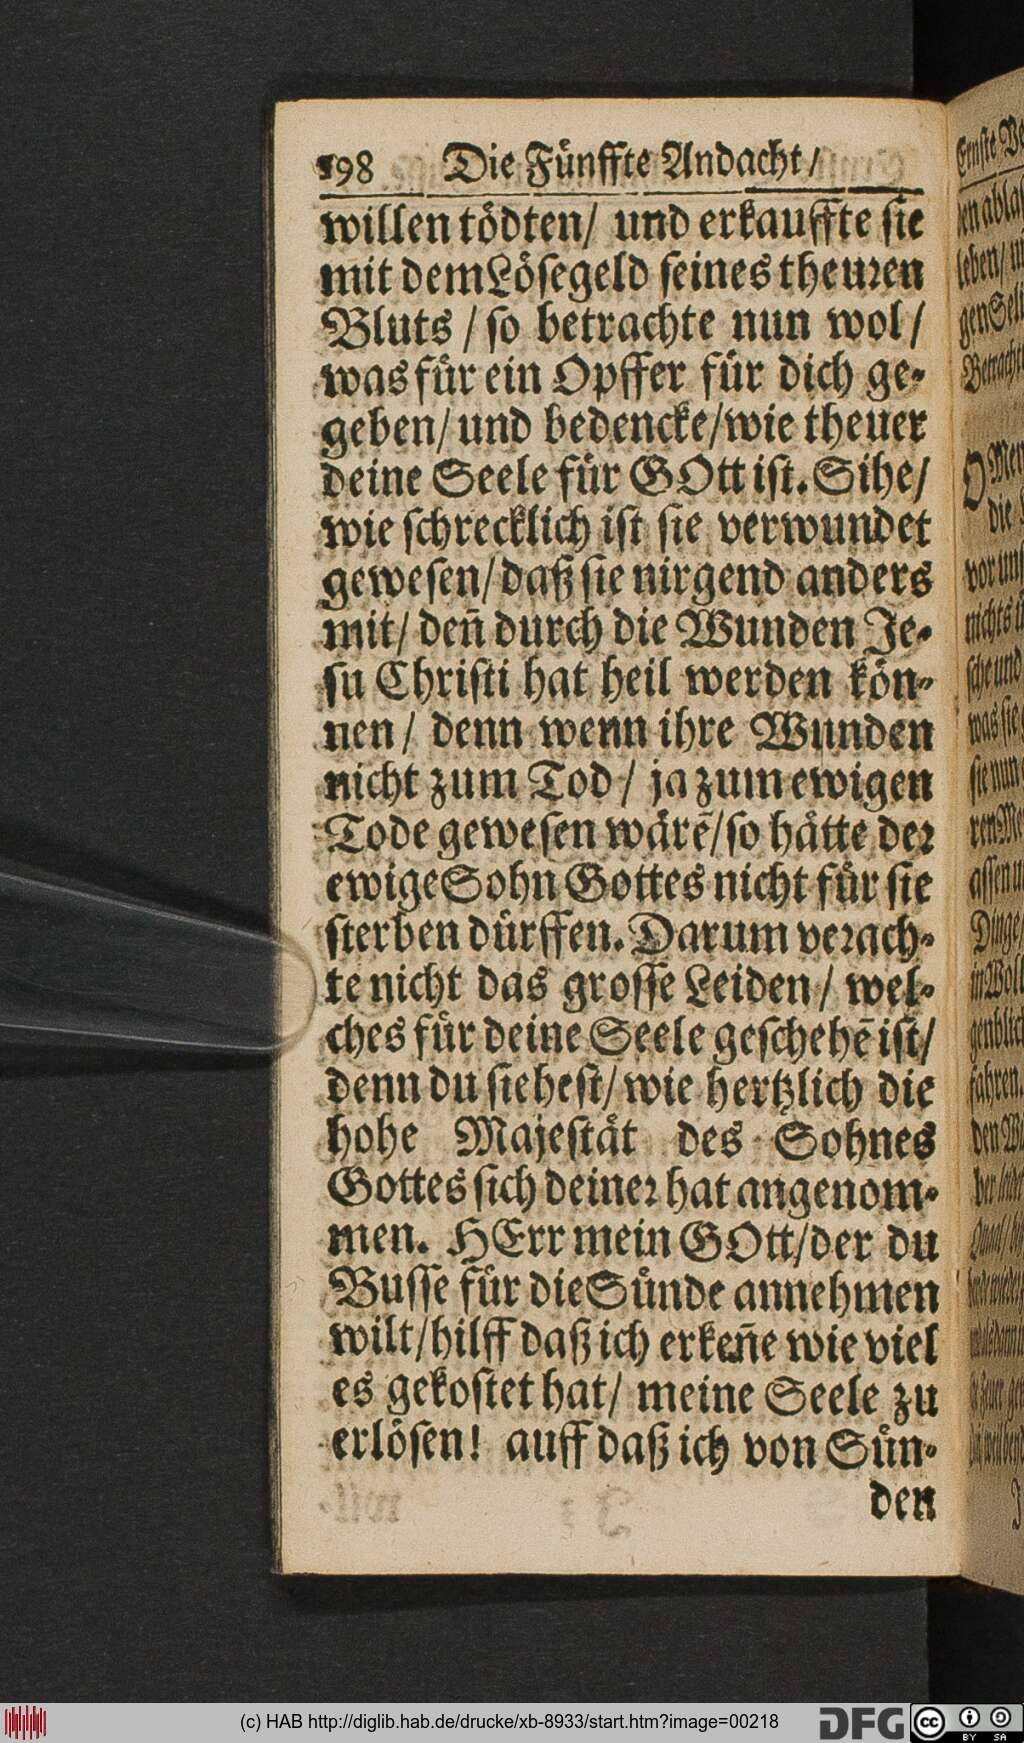 198 Die Fünffte Andacht/
willen tödten/ und erkauffte sie
mit dem Lösegeld seines theuren
Bluts / so betrachte nun wol/
was für ein Opffer für dich ge-
geben/ und bedencke/wie theuer
deine Seele für GOtt ist. Sihe/
wie schrecklich ist sie verwundet
gewesen/ daß sie nirgend anders
mit/ den̄ durch die Wunden Je-
su Christi hat heil werden kön-
nen/ denn wenn ihre Wunden
nicht zum Tod/ ja zum ewigen
Tode gewesen wärē/so hätte der
ewige Sohn Gottes nicht für sie
sterben dürffen. Darum verach-
te nicht das grosse Leiden/ wel-
ches für deine Seele geschehē ist/
denn du siehest/ wie hertzlich die
hohe Majestät des Sohnes
Gottes sich deiner hat angenom-
men. HErr mein GOtt/der du
Busse für die Sünde annehmen
wilt/hilff daß ich erken̄e wie viel
es gekostet hat/ meine Seele zu
erlösen! auff daß ich von Sün-
den
(c) HAB http://diglib.hab.de/drucke/xb-8933/start.htm?image=00218
DFG
cc BY SA